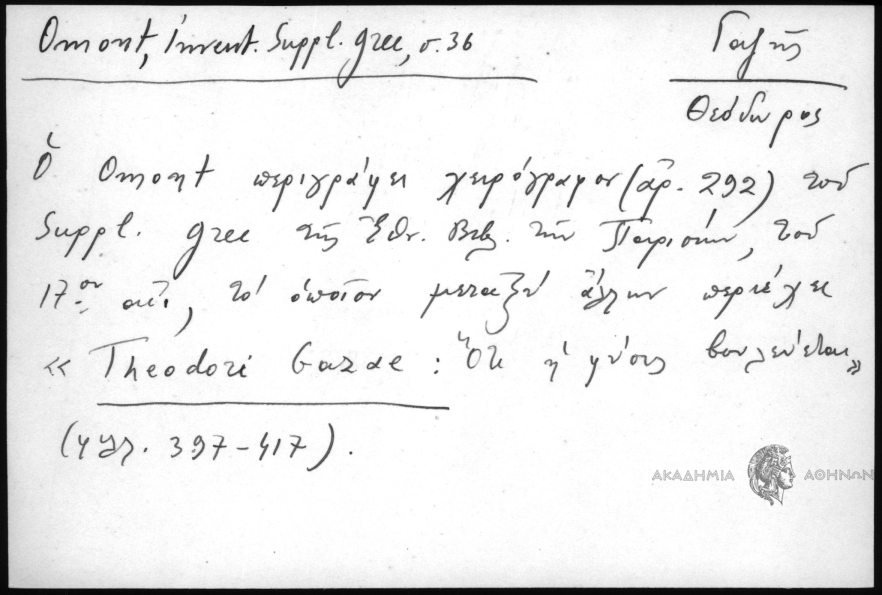 Omont, Invent. Suppl. grec, σ. 36
Γαζῆς
Θεόδωρος
Ὁ Omont περιγράφει χειρόγραφον (ἀρ. 292) τοῦ
Suppl. grec τῆς Ἐθν. Βιβ. τῶν Παρισίων, τοῦ
17ου αἰ., τὸ ὁποῖον μεταξὺ ἄλλων περιέχει
« Theodori Gazae : Ὅτι ἡ φύσις βουλεύεται »
(φύλ. 397-417).
ΑΚΑΔΗΜΙΑ ΑΘΗΝΩΝ